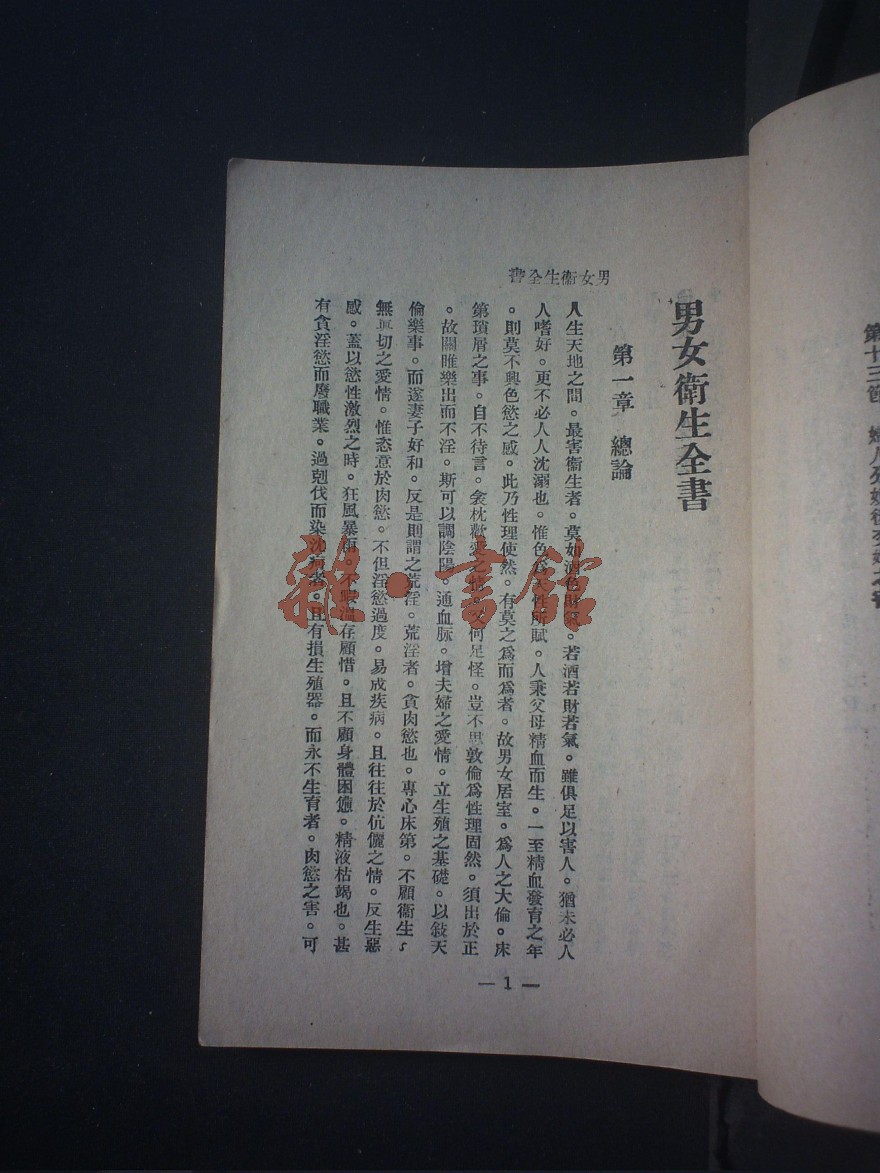 男女衞生全書
男女衞生全書
第一章　總論
人生天地之間。最害衞生者。莫如酒色財氣。若酒若財若氣。雖俱足以害人。猶未必人
人嗜好。更不必人人沈溺也。惟色爲天性所賦。人秉父母精血而生。一至精血發育之年
。則莫不興色慾之感。此乃性理使然。有莫之爲而爲者。故男女居室。爲人之大倫。床
第瑣屑之事。自不待言。衾枕歡愛之情。又何足怪。豈不思敦倫爲性理固然。須出於正
。故關睢樂出而不淫。斯可以調陰陽。通血脈。增夫婦之愛情。立生殖之基礎。以敍天
倫樂事。而遂妻子好和。反是則謂之荒淫。荒淫者。貪肉慾也。專心床第。不顧衞生。
無眞切之愛情。惟恣意於肉慾。不但淫慾過度。易成疾病。且往往於伉儷之情。反生惡
感。蓋以慾性激烈之時。狂風暴雨。不暇溫存顧惜。且不顧身體困憊。精液枯竭也。甚
有貪淫慾而廢職業。過剋伐而染沈疴者。且有損生殖器。而永不生育者。肉慾之害。可
— 1 —
雜·書館
第十三節